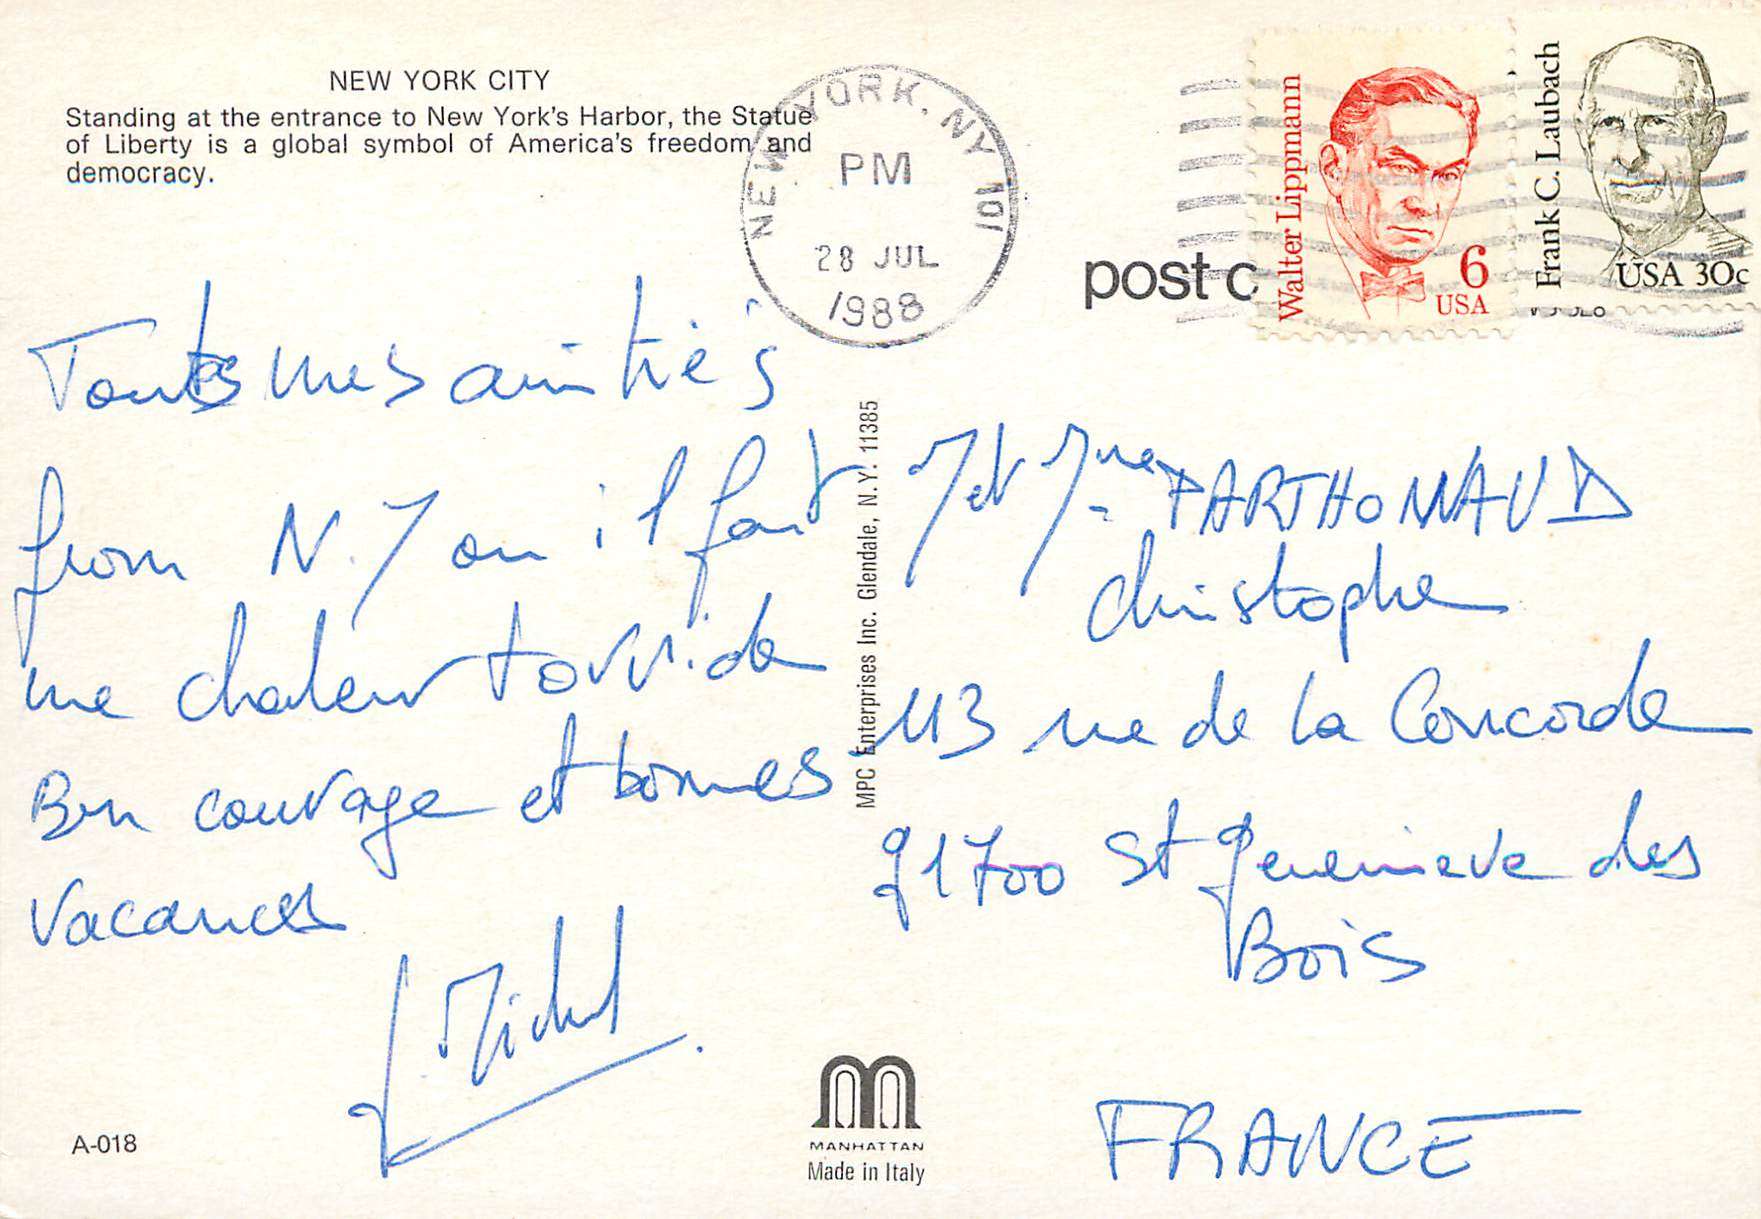 NEW YORK CITY
Standing at the entrance to New York's Harbor, the Statue
of Liberty is a global symbol of America's freedom and
democracy.
NEW YORK, NY 101
PM
28 JUL
1988
post c
Walter Lippmann
6
USA
Frank C. Laubach
USA 30c
Toutes mes amitiés
from N.Y où il fait
une chaleur torride
Bon courage et bonnes
vacances
J. Michel
MPC Enterprises Inc. Glendale, N.Y. 11385
M et Mme PARTHONNAUD
christophe
113 rue de la Concorde
91700 St Genevieve des
Bois
FRANCE
A-018
MANHATTAN
Made in Italy